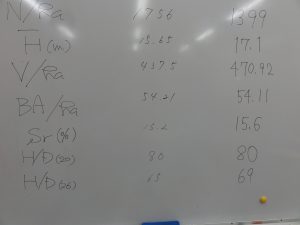 N/Ra 1756 1399
H̅ (m) 15.65 17.1
V/Ra 437.5 470.92
BA/Ra 54.21 54.11
Sr (%) 15.2 15.6
H/D (20) 80 80
H/D (26) 65 69